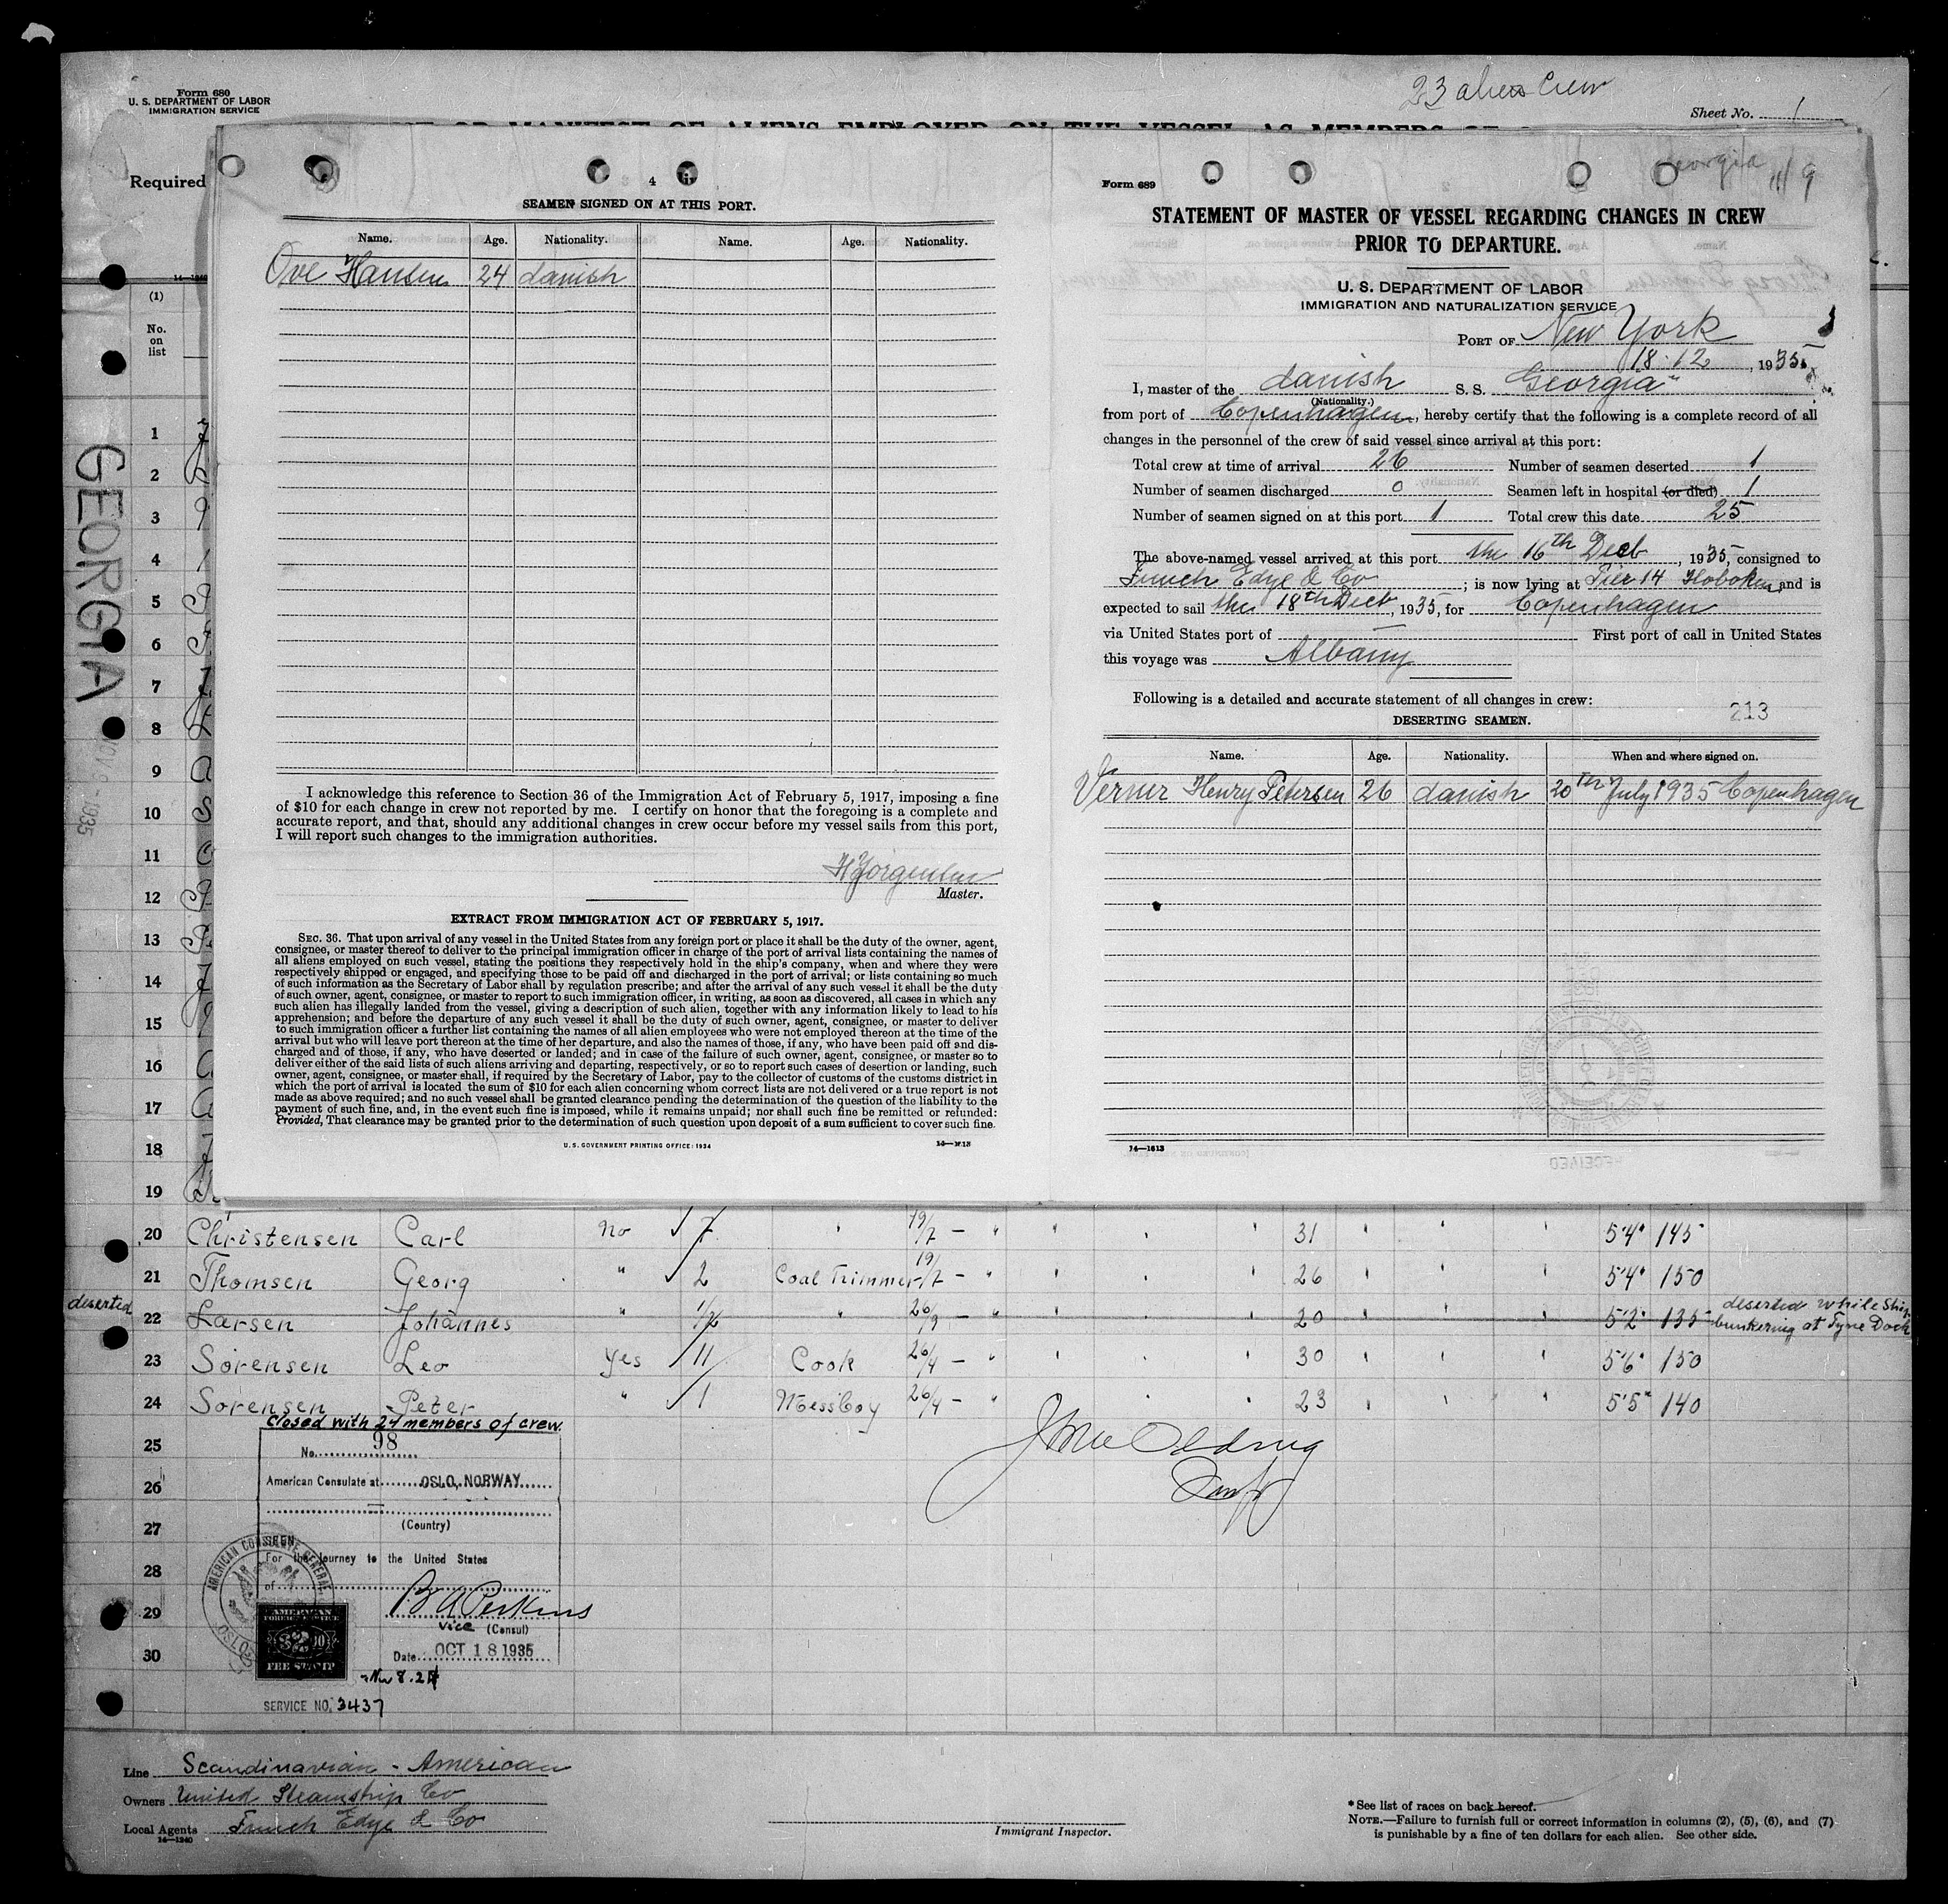 Form 680
U. S. DEPARTMENT OF LABOR
IMMIGRATION SERVICE
23 aliens Crew
Sheet No. 1
Required
GEORGIA
NOV 9 - 1935
(1)
No.
on
list
1
2
3
4
5
6
7
8
9
10
11
12
13
14
15
16
17
18
19
4
SEAMEN SIGNED ON AT THIS PORT.
Name. Age. Nationality. Name. Age. Nationality.
Ove Hansen 24 danish
I acknowledge this reference to Section 36 of the Immigration Act of February 5, 1917, imposing a fine
of $10 for each change in crew not reported by me. I certify on honor that the foregoing is a complete and
accurate report, and that, should any additional changes in crew occur before my vessel sails from this port,
I will report such changes to the immigration authorities.
H Jörgensen
Master.
EXTRACT FROM IMMIGRATION ACT OF FEBRUARY 5, 1917.
SEC. 36. That upon arrival of any vessel in the United States from any foreign port or place it shall be the duty of the owner, agent,
consignee, or master thereof to deliver to the principal immigration officer in charge of the port of arrival lists containing the names of
all aliens employed on such vessel, stating the positions they respectively hold in the ship's company, when and where they were
respectively shipped or engaged, and specifying those to be paid off and discharged in the port of arrival; or lists containing so much
of such information as the Secretary of Labor shall by regulation prescribe; and after the arrival of any such vessel it shall be the duty
of such owner, agent, consignee, or master to report to such immigration officer, in writing, as soon as discovered, all cases in which any
such alien has illegally landed from the vessel, giving a description of such alien, together with any information likely to lead to his
apprehension; and before the departure of any such vessel it shall be the duty of such owner, agent, consignee, or master to deliver
to such immigration officer a further list containing the names of all alien employees who were not employed thereon at the time of the
arrival but who will leave port thereon at the time of her departure, and also the names of those, if any, who have been paid off and dis-
charged and of those, if any, who have deserted or landed; and in case of the failure of such owner, agent, consignee, or master so to
deliver either of the said lists of such aliens arriving and departing, respectively, or so to report such cases of desertion or landing, such
owner, agent, consignee, or master shall, if required by the Secretary of Labor, pay to the collector of customs of the customs district in
which the port of arrival is located the sum of $10 for each alien concerning whom correct lists are not delivered or a true report is not
made as above required; and no such vessel shall be granted clearance pending the determination of the question of the liability to the
payment of such fine, and, in the event such fine is imposed, while it remains unpaid; nor shall such fine be remitted or refunded:
Provided, That clearance may be granted prior to the determination of such question upon deposit of a sum sufficient to cover such fine.
U. S. GOVERNMENT PRINTING OFFICE: 1934
14—1613
Georgia
Form 689
STATEMENT OF MASTER OF VESSEL REGARDING CHANGES IN CREW
PRIOR TO DEPARTURE.
U. S. DEPARTMENT OF LABOR
IMMIGRATION AND NATURALIZATION SERVICE
PORT OF New York
18.12, 1935
I, master of the danish S. S. Georgia"
(Nationality.)
from port of Copenhagen, hereby certify that the following is a complete record of all
changes in the personnel of the crew of said vessel since arrival at this port:
Total crew at time of arrival 26 Number of seamen deserted 1
Number of seamen discharged 0 Seamen left in hospital (or died) 1
Number of seamen signed on at this port 1 Total crew this date 25
The above-named vessel arrived at this port the 16th Decb, 1935, consigned to
Funch Edye & Co; is now lying at Pier 14 Hoboken, and is
expected to sail the 18th Decb, 1935, for Copenhagen
via United States port of — First port of call in United States
this voyage was Albany
Following is a detailed and accurate statement of all changes in crew:
213
DESERTING SEAMEN.
Name. Age. Nationality. When and where signed on.
Verner Henry Petersen 26 danish 20th July 1935 Copenhagen
14—1613
20 Christensen Carl no 7 " 19/7 - " 31 5'4" 145
21 Thomsen Georg " 2 Coal Trimmer 19/7 - " 26 5'4" 150
deserted 22 Larsen Johannes " 1/2 " 26/9 - " 20 5'2" 135 deserted while Ship
bunkering at Tyne Dock
23 Sörensen Leo Yes 11 Cook 26/4 - " 30 5'6" 150
24 Sörensen Peter " 1 Messboy 26/4 - " 23 5'5" 140
Closed with 24 members of crew.
25
26
27
28
29
30
No. 98
American Consulate at OSLO, NORWAY
(Country)
SEEN
For the Journey to the United States
of
B A Perkins
Vice (Consul)
Date OCT 18 1935
AMERICAN CONSULATE GENERAL
OSLO
AMERICAN
FOREIGN SERVICE
$2.00
FEE STAMP
SERVICE NO. 3437
Line Scandinavian - American
Owners United Steamship Co
Local Agents Funch Edye & Co
14—1240
Immigrant Inspector.
* See list of races on back hereof.
NOTE.—Failure to furnish full or correct information in columns (2), (5), (6), and (7)
is punishable by a fine of ten dollars for each alien. See other side.